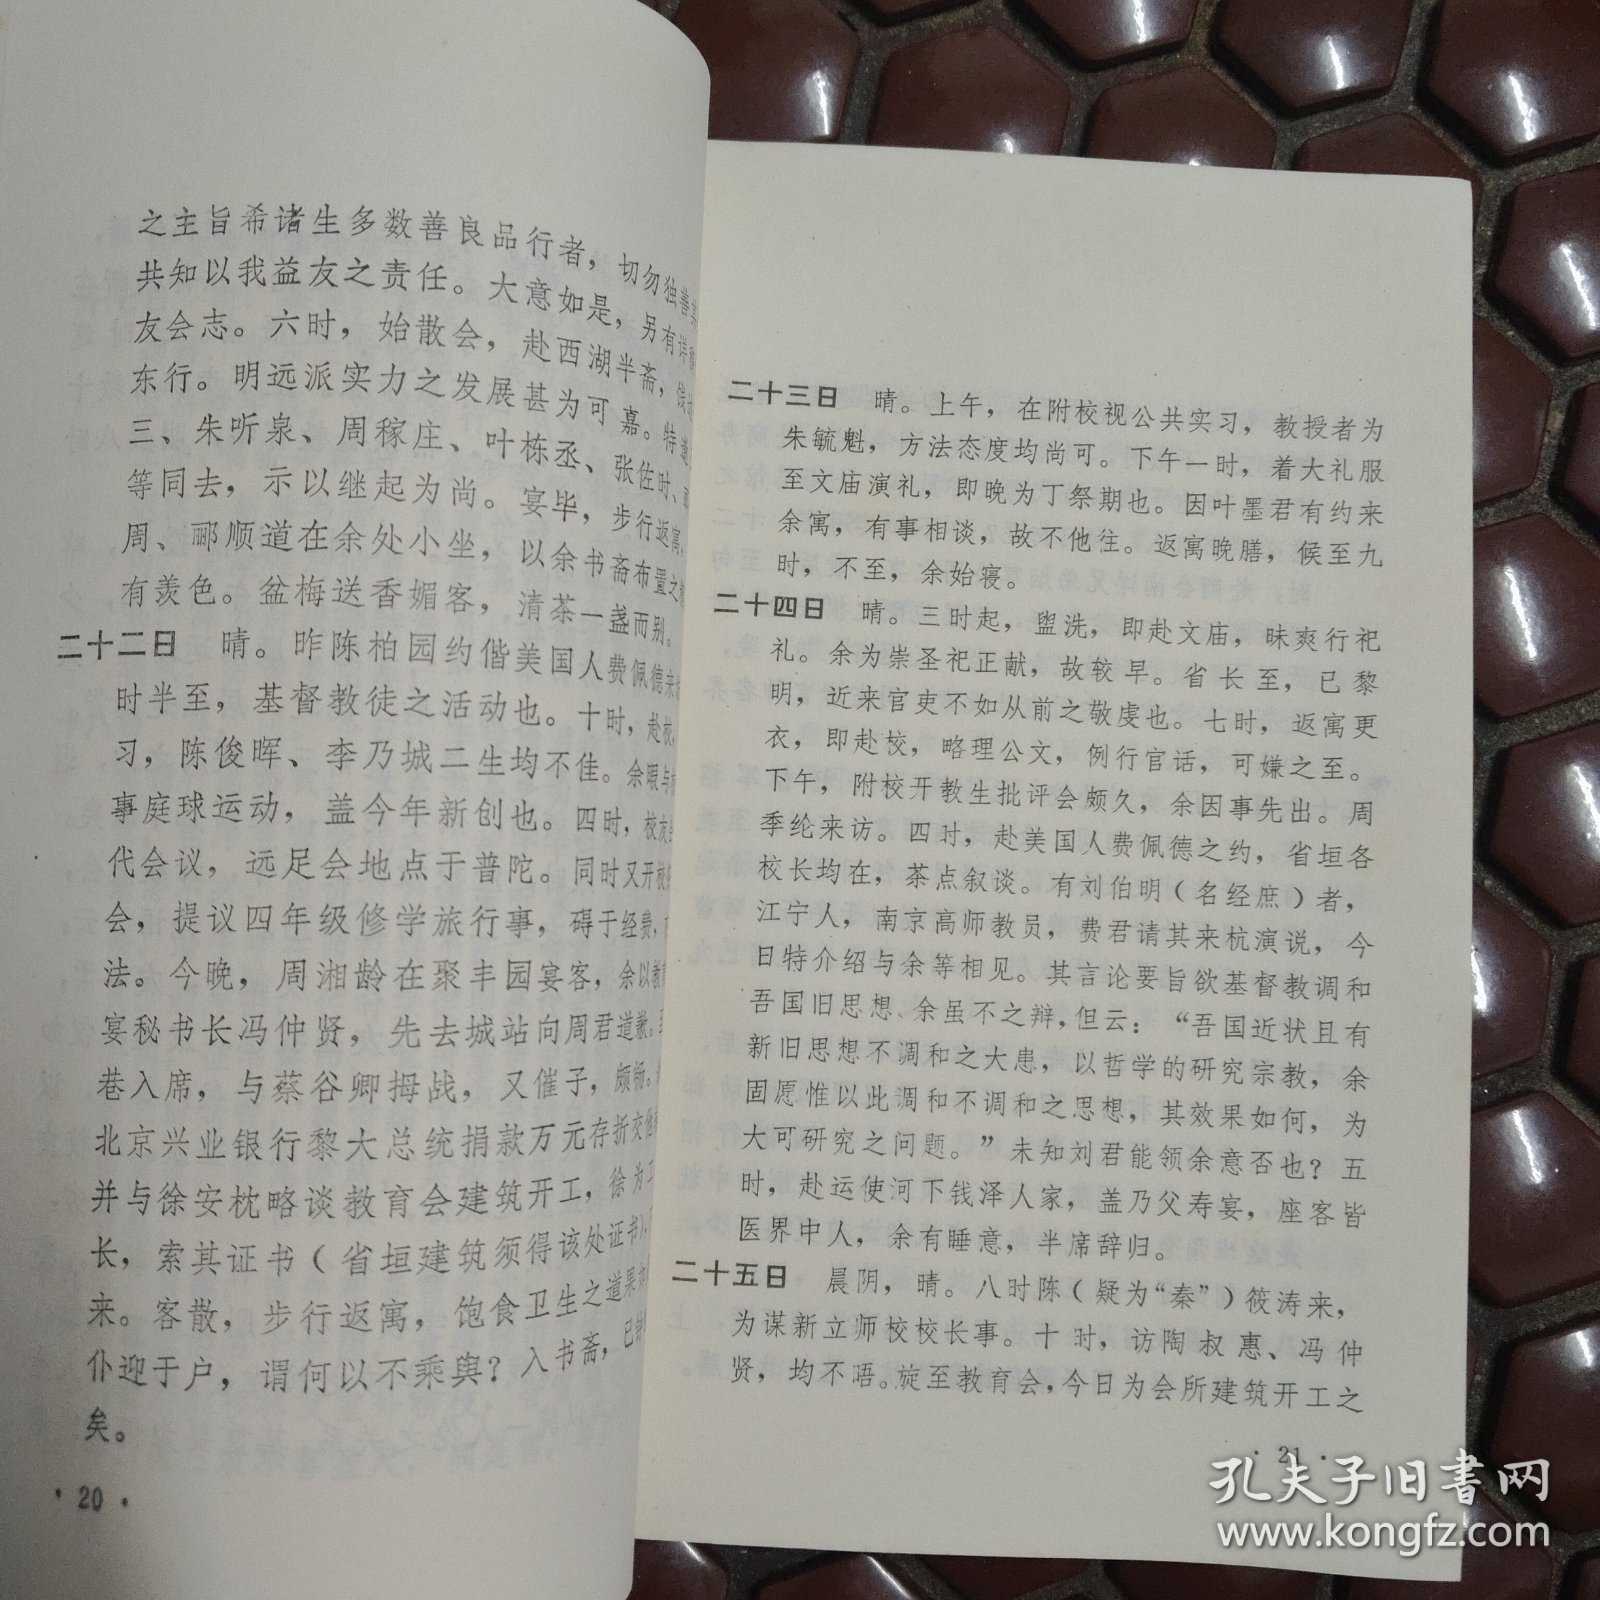 之主旨希诸生多数善良品行者，切勿独善其
共知以我益友之责任。大意如是，另有详
友会志。六时，始散会，赴西湖半斋，饯
东行。明远派实力之发展甚为可嘉。特道
三、朱听泉、周稼庄、叶栋丞、张佐时、
等同去，示以继起为尚。宴毕，步行返寓，
周、郦顺道在余处小坐，以余书斋布置之
有羡色。盆梅送香媚客，清茶一盏而别。
二十二日　晴。昨陈柏园约偕美国人费佩德来
时半至，基督教徒之活动也。十时，赴校，
习，陈俊晖、李乃城二生均不佳。余暇与
事庭球运动，盖今年新创也。四时，校友
代会议，远足会地点于普陀。同时又开校
会，提议四年级修学旅行事，碍于经费，
法。今晚，周湘龄在聚丰园宴客，余以教
宴秘书长冯仲贤，先去城站向周君道歉。
巷入席，与蔡谷卿拇战，又催子，颇畅。
北京兴业银行黎大总统捐款万元存折交他
并与徐安枕略谈教育会建筑开工，徐为工
长，索其证书（省垣建筑须得该处证书）
来。客散，步行返寓，饱食卫生之道果
仆迎于户，谓何以不乘舆？入书斋，已
矣。
·20·
二十三日　晴。上午，在附校视公共实习，教授者为
朱毓魁，方法态度均尚可。下午一时，着大礼服
至文庙演礼，即晚为丁祭期也。因叶墨君有约来
余寓，有事相谈，故不他往。返寓晚膳，候至九
时，不至，余始寝。
二十四日　晴。三时起，盥洗，即赴文庙，昧爽行祀
礼。余为崇圣祀正献，故较早。省长至，已黎
明，近来官吏不如从前之敬虔也。七时，返寓更
衣，即赴校，略理公文，例行官话，可嫌之至。
下午，附校开教生批评会颇久，余因事先出。周
季纶来访。四时，赴美国人费佩德之约，省垣各
校长均在，茶点叙谈。有刘伯明（名经庶）者，
江宁人，南京高师教员，费君请其来杭演说，今
日特介绍与余等相见。其言论要旨欲基督教调和
吾国旧思想、余虽不之辩，但云：“吾国近状且有
新旧思想不调和之大患，以哲学的研究宗教，余
固愿惟以此调和不调和之思想，其效果如何，为
大可研究之问题。”未知刘君能领余意否也？五
时，赴运使河下钱泽人家，盖乃父寿宴，座客皆
医界中人，余有睡意，半席辞归。
二十五日　晨阴，晴。八时陈（疑为“秦”）筱涛来，
为谋新立师校校长事。十时，访陶叔惠、冯仲
贤，均不晤。旋至教育会，今日为会所建筑开工之
·21·
孔夫子旧书网
www.kongfz.com